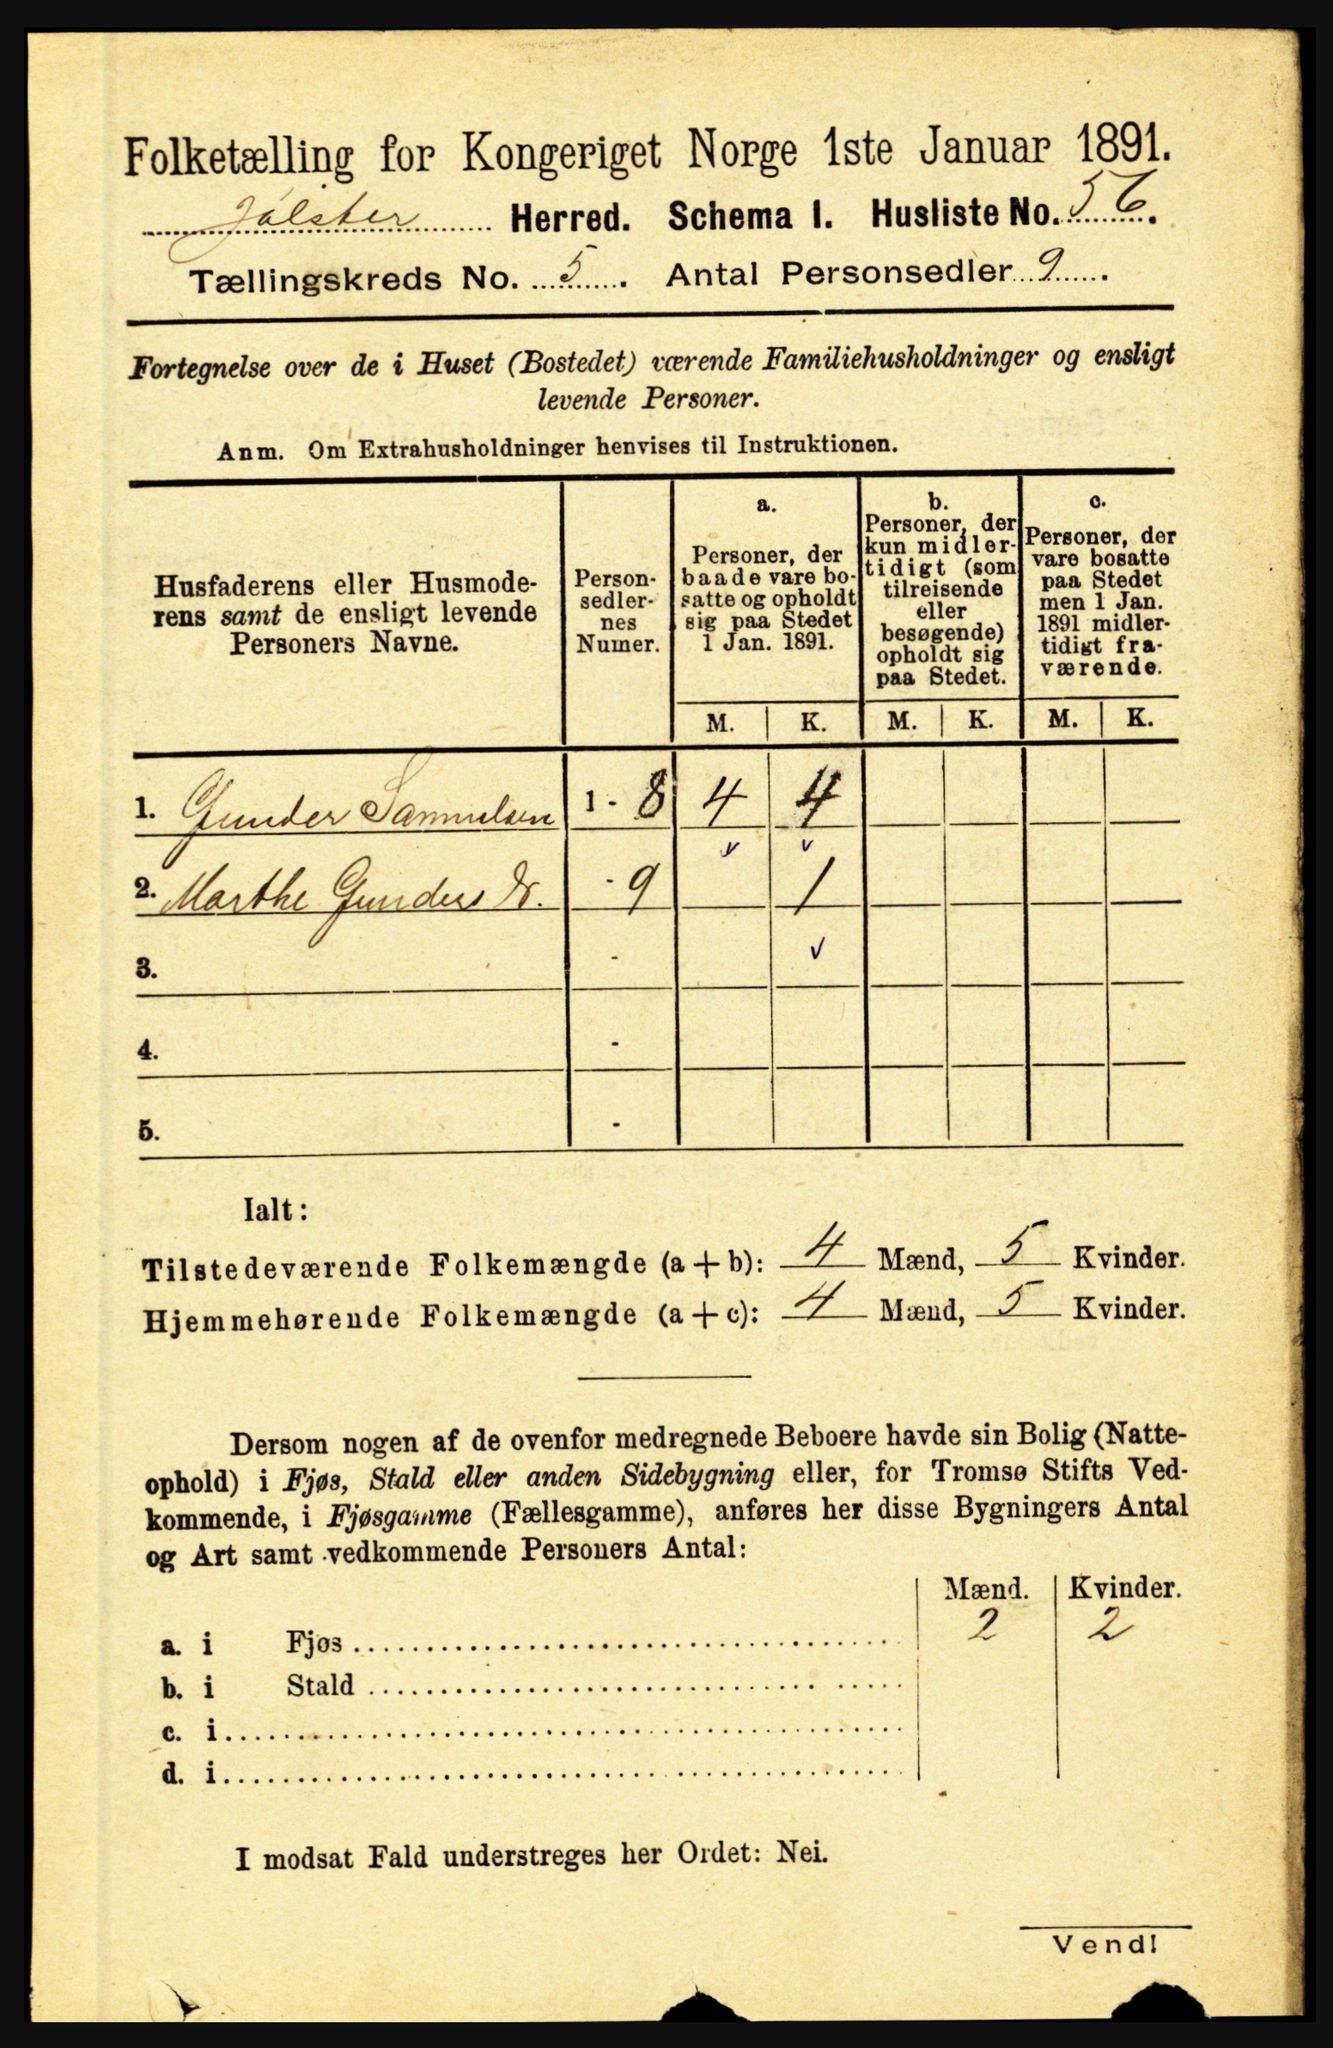 Folketælling for Kongeriget Norge 1ste Januar 1891.
Jølster Herred. Schema I. Husliste No. 56.
Tællingskreds No. 5. Antal Personsedler 9.
Fortegnelse over de i Huset (Bostedet) værende Familiehusholdninger og ensligt
levende Personer.
Anm. Om Extrahusholdninger henvises til Instruktionen.
Husfaderens eller Husmode-
rens samt de ensligt levende
Personers Navne.
Person-
sedler-
nes
Numer.
a.
Personer, der
baade vare bo-
satte og opholdt
sig paa Stedet
1 Jan. 1891.
b.
Personer, der
kun midler-
tidigt (som
tilreisende
eller
besøgende)
opholdt sig
paa Stedet.
c.
Personer, der
vare bosatte
paa Stedet
men 1 Jan.
1891 midler-
tidigt fra-
værende.
M. K. M. K. M. K.
1. Gunder Samuelsen 1 - 8 4 4
2. Marthe Gundersd. - 9 1
3. -
4. -
5. -
Ialt:
Tilstedeværende Folkemængde (a+b): 4 Mænd, 5 Kvinder.
Hjemmehørende Folkemængde (a+c): 4 Mænd, 5 Kvinder.
Dersom nogen af de ovenfor medregnede Beboere havde sin Bolig (Natte-
ophold) i Fjøs, Stald eller anden Sidebygning eller, for Tromsø Stifts Ved-
kommende, i Fjøsgamme (Fællesgamme), anføres her disse Bygningers Antal
og Art samt vedkommende Personers Antal:
Mænd. Kvinder.
a. i Fjøs 2 2
b. i Stald
c. i
d. i
I modsat Fald understreges her Ordet: Nei.
Vend!